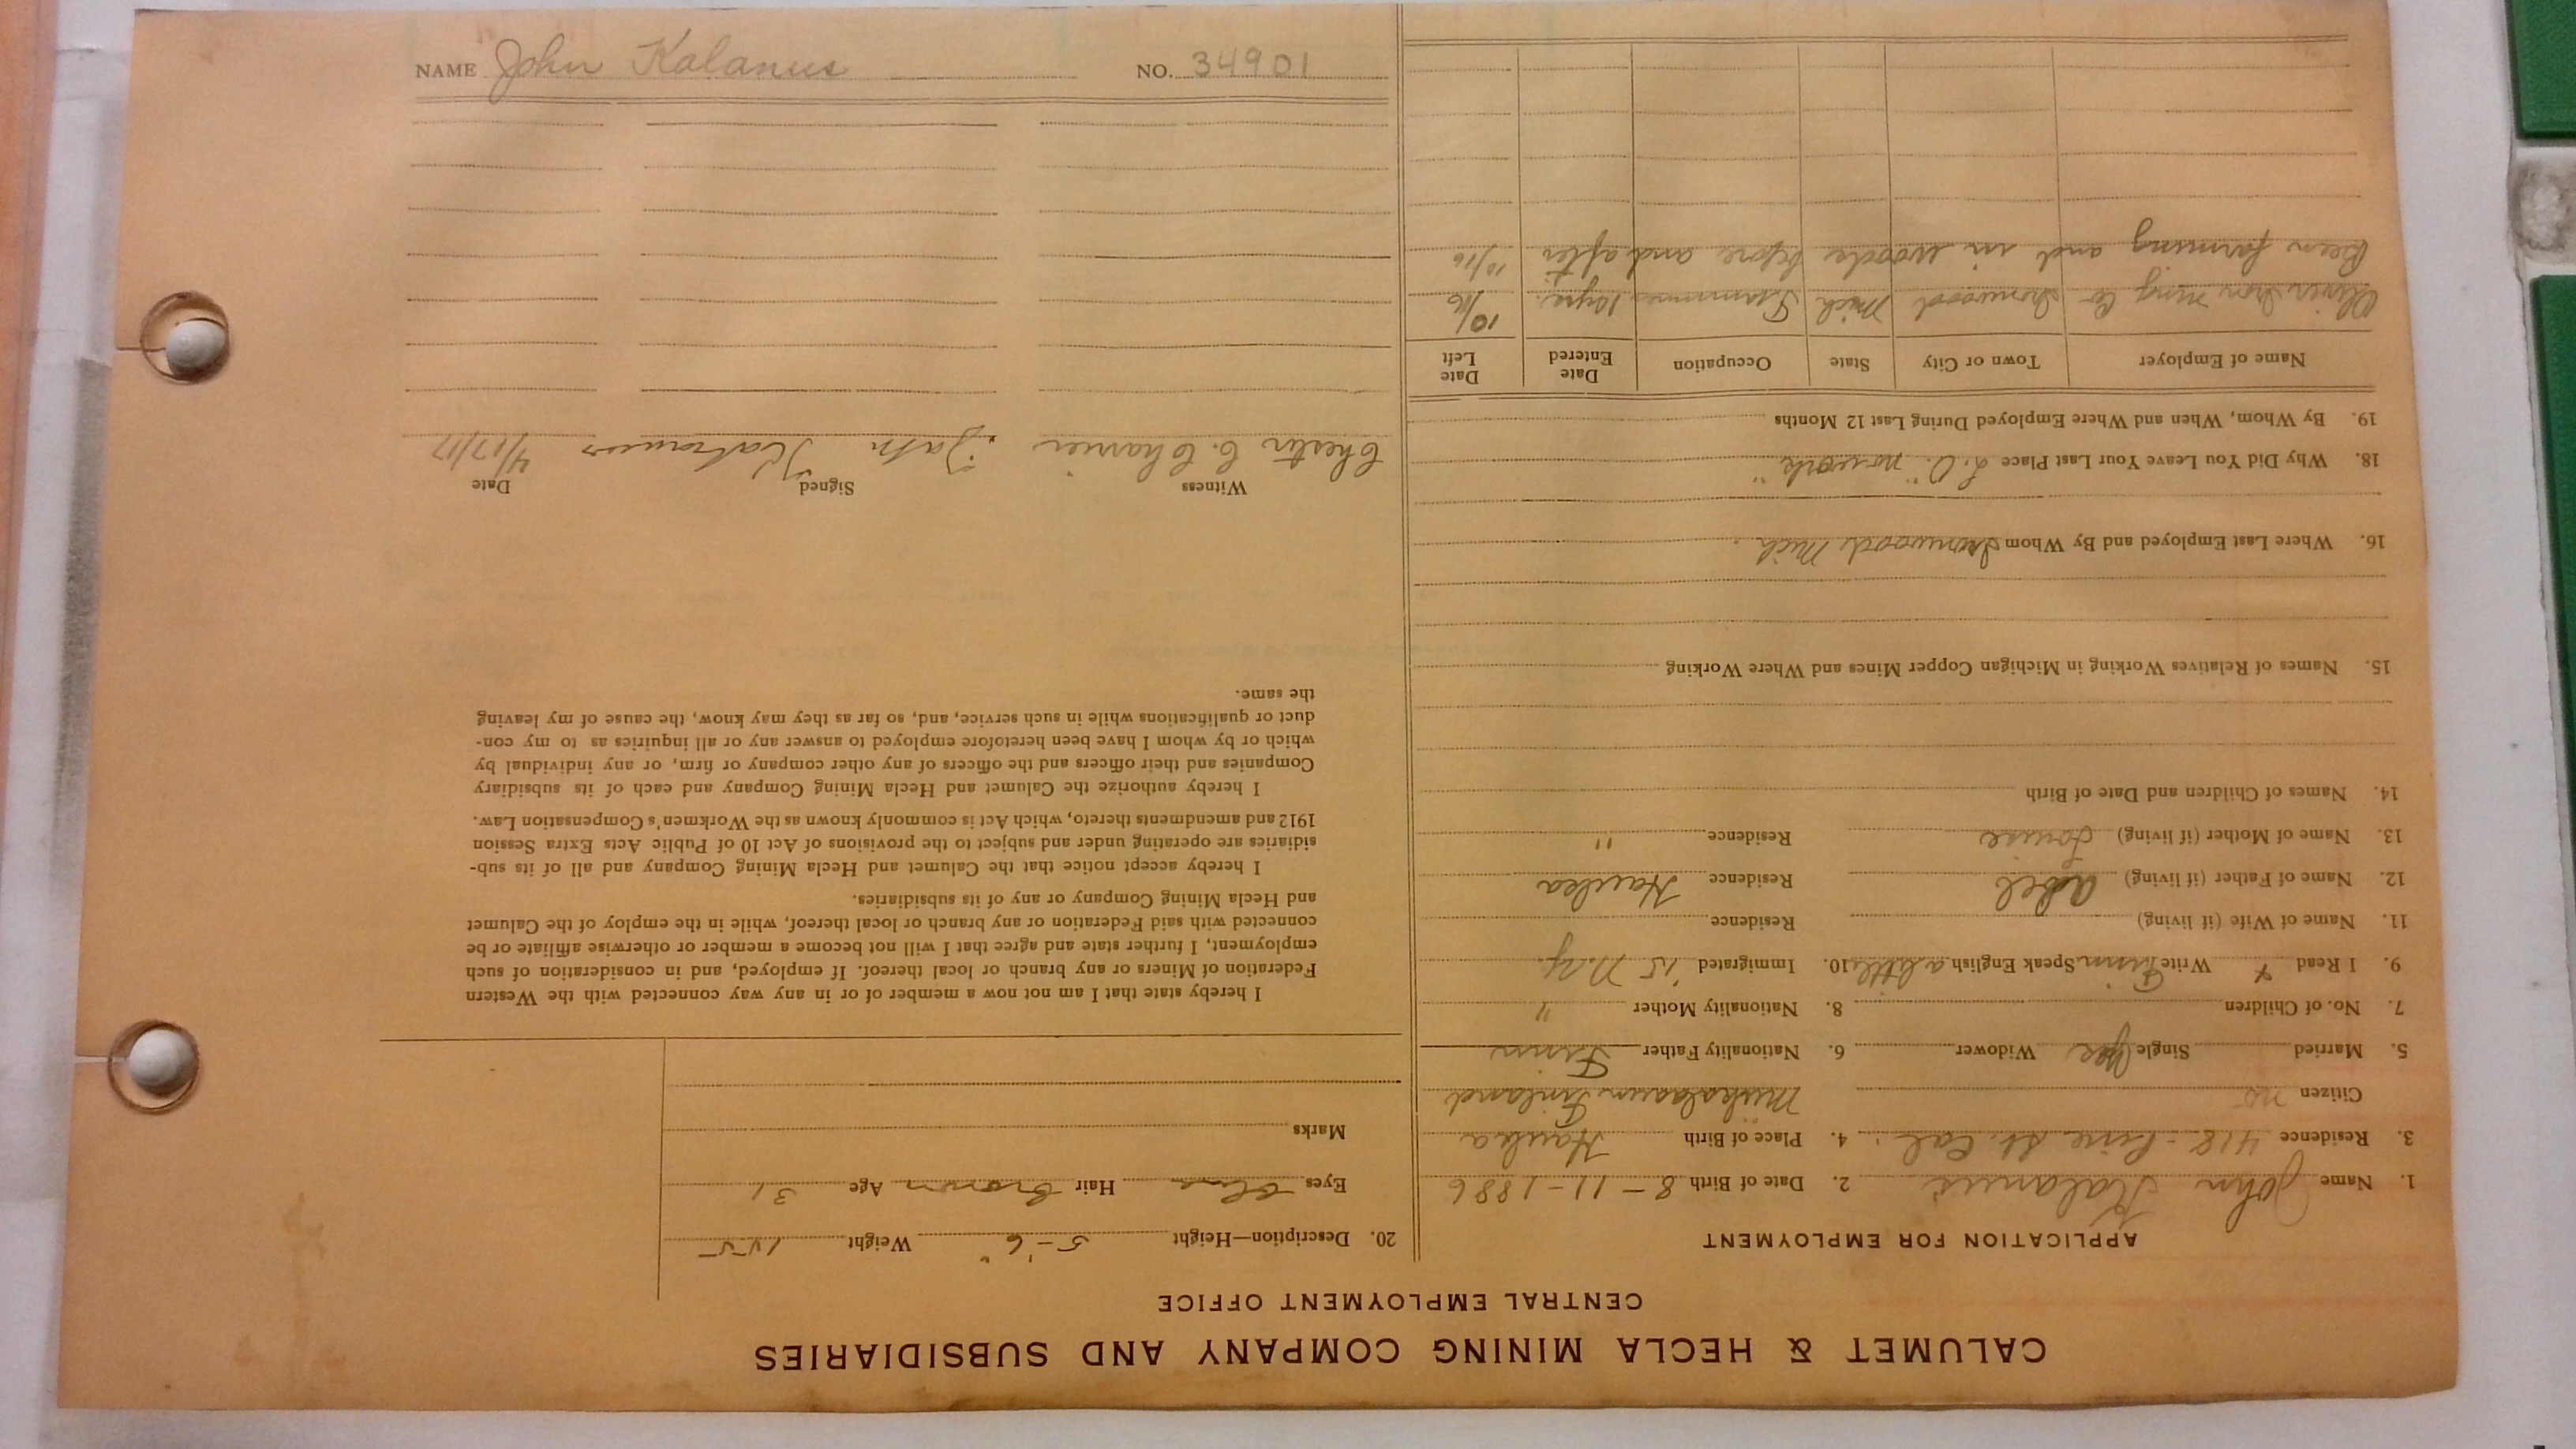 CALUMET & HECLA MINING COMPANY AND SUBSIDIARIES
CENTRAL EMPLOYMENT OFFICE
APPLICATION FOR EMPLOYMENT
1. Name John Kalanus 2. Date of Birth 8-11-1886
3. Residence 418 - Pine St. Cal. 4. Place of Birth Haukea
Citizen no Finland
5. Married Single Yes Widower 6. Nationality Father Finn
7. No. of Children 8. Nationality Mother "
9. I Read + Write Finn Speak English a little 10. Immigrated '15 N.Y.
11. Name of Wife (if living) Residence
12. Name of Father (if living) Abel Residence Haukea
13. Name of Mother (if living) Louise Residence "
14. Names of Children and Date of Birth
15. Names of Relatives Working in Michigan Copper Mines and Where Working
16. Where Last Employed and By Whom Ironwood Mich.
18. Why Did You Leave Your Last Place L.O. "no work"
19. By Whom, When and Where Employed During Last 12 Months
Name of Employer Town or City State Occupation Date Entered Date Left
Oliver Iron Ming Co Ironwood Mich Trammer 10/16
Been farming and in woods before and after 10/16
20. Description—Height 5-6" Weight 155
Eyes Blue Hair Brown Age 31
Marks
I hereby state that I am not now a member of or in any way connected with the Western
Federation of Miners or any branch or local thereof. If employed, and in consideration of such
employment, I further state and agree that I will not become a member or otherwise affiliate or be
connected with said Federation or any branch or local thereof, while in the employ of the Calumet
and Hecla Mining Company or any of its subsidiaries.
I hereby accept notice that the Calumet and Hecla Mining Company and all of its sub-
sidiaries are operating under and subject to the provisions of Act 10 of Public Acts Extra Session
1912 and amendments thereto, which Act is commonly known as the Workmen's Compensation Law.
I hereby authorize the Calumet and Hecla Mining Company and each of its subsidiary
Companies and their officers and the officers of any other company or firm, or any individual by
which or by whom I have been heretofore employed to answer any or all inquiries as to my con-
duct or qualifications while in such service, and, so far as they may know, the cause of my leaving
the same.
Witness Signed Date
Chester C. John 4/17/17
NAME John Kalanus NO. 34901